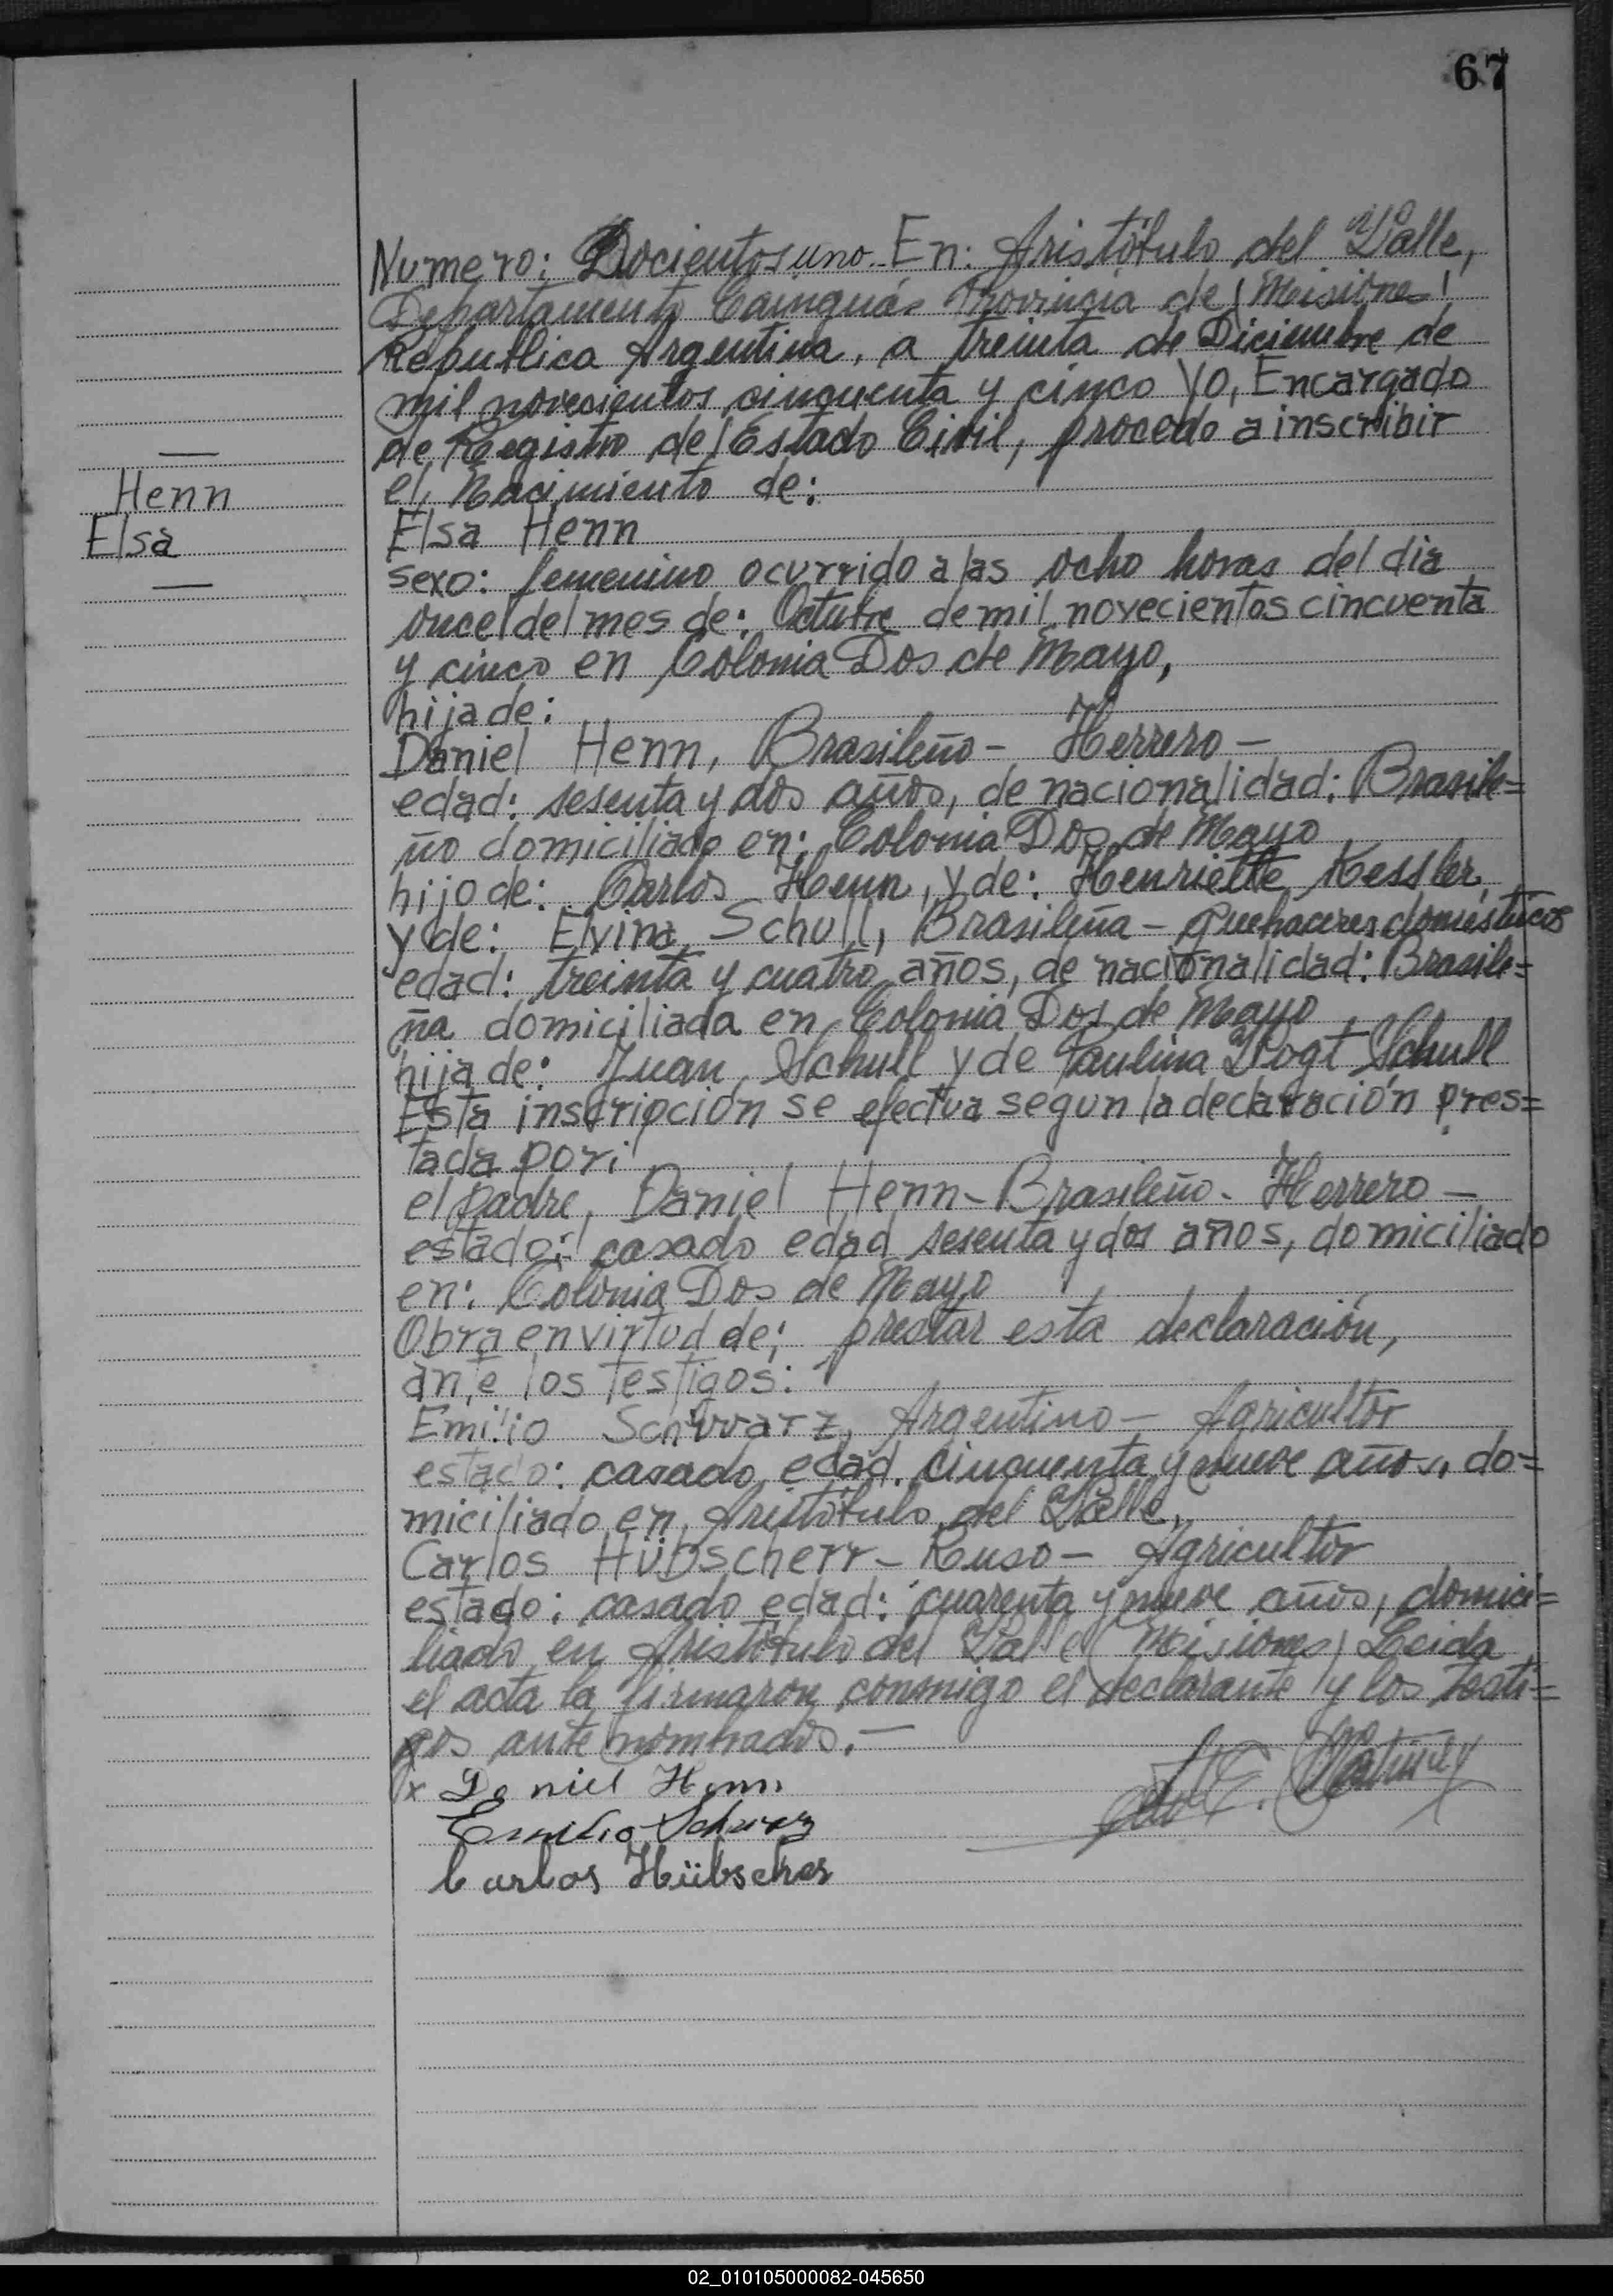 67
Numero: Docientos uno. En: Aristóbulo del Valle,
Departamento Cainguás Provincia de Misiones
República Argentina, a treinta de Diciembre de
mil novecientos cinquenta y cinco Yo, Encargado
de Registro del Estado Civil, procedo a inscribir
el, Nacimiento de:
Henn
Elsa
Elsa Henn
sexo: femenino ocurrido a las ocho horas del dia
once del mes de: Octubre de mil novecientos cincuenta
y cinco en Colonia Dos de Mayo,
hija de:
Daniel Henn, Brasileño - Herrero -
edad: sesenta y dos años, de nacionalidad: Brasile=
ño domiciliado en: Colonia Dos de Mayo
hijo de: Carlos Henn, y de: Henriette Kessler,
y de: Elvina Schull, Brasileña - Quehaceres domésticos
edad: treinta y cuatro años, de nacionalidad: Brasile=
ña domiciliada en Colonia Dos de Mayo
hija de: Juan Schull y de Paulina Vogt Schull
Esta inscripción se efectua segun la declaración pres=
tada por:
el padre, Daniel Henn - Brasileño - Herrero -
estado: casado edad sesenta y dos años, domiciliado
en: Colonia Dos de Mayo
Obra en virtud de; prestar esta declaración,
ante los testigos:
Emilio Schwarz, Argentino - Agricultor
estado: casado edad. cincuenta y nueve años, do=
miciliado en Aristóbulo del Valle,
Carlos Hübscherr - Ruso - Agricultor
estado: casado edad: cuarenta y nueve años, domici=
liado en Aristóbulo del Valle (Misiones) Leida
el acta la firmaron conmigo el declarante y los testi=
gos ante nombrados. -
x Daniel Henn
Emilio Schwarz
Carlos Hübscher
02_010105000082-045650